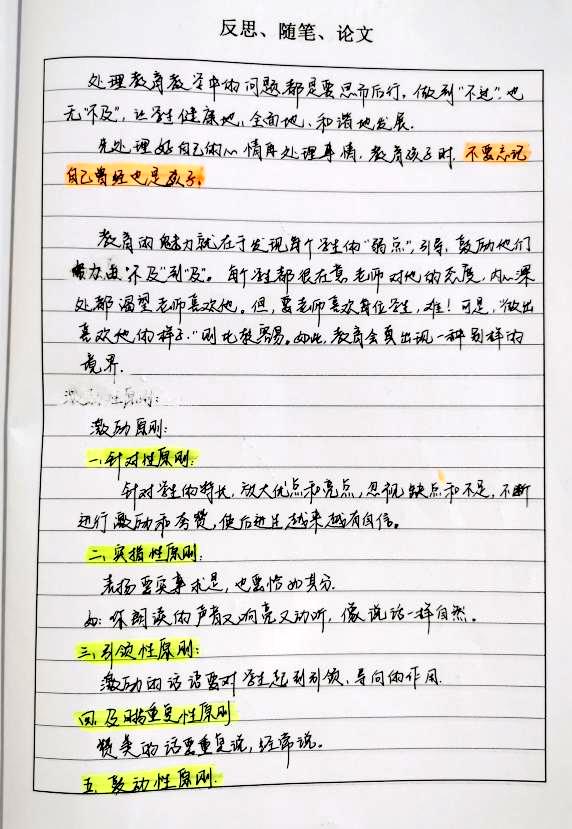 反思、随笔、论文
处理教育教学中的问题都是要思而后行,做到“不过”,也
无“不及”,让学生健康地,全面地,和谐地发展.
先处理好自己的心情再处理事情,教育孩子时,不要忘记
自己曾经也是孩子.
教育的魅力就在于发现每个学生的“弱点”,引导,鼓励他们
努力由“不及”到“及”。每个学生都很在意老师对他的态度,内心深
处都渴望老师喜欢他。但,要老师喜欢每位学生,难!可是,“做出
喜欢他的样子,”则比较容易。如此,教育会真出现一种别样的
境界.
性原则:
激励原则:
一、针对性原则:
针对学生的特长,放大优点和亮点,忽视缺点和不足,不断
进行激励和夸赞,使后进生越来越有自信。
二、实措性原则:
表扬要实事求是,也要恰如其分.
如:你朗读的声音又响亮又动听,像说话一样自然。
三、引领性原则:
激励的话语要对学生起到引领,导向的作用.
四、及时重复性原则
赞美的话要重复说,经常说。
五、鼓动性原则.